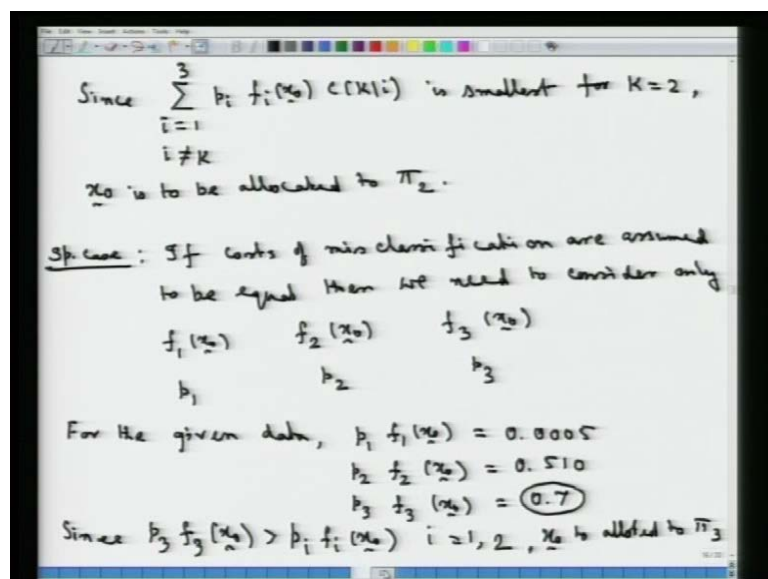 Since Σ_{i=1, i≠K}^{3} p_i f_i(x_0) c(K|i) is smallest for K=2,
x_0 is to be allocated to π_2.
Sp. case : If costs of misclassification are assumed
to be equal then we need to consider only
f_1(x_0) f_2(x_0) f_3(x_0)
p_1 p_2 p_3
For the given data, p_1 f_1(x_0) = 0.0005
p_2 f_2(x_0) = 0.510
p_3 f_3(x_0) = 0.7
Since p_3 f_3(x_0) > p_i f_i(x_0) i=1,2, x_0 is alloted to π_3